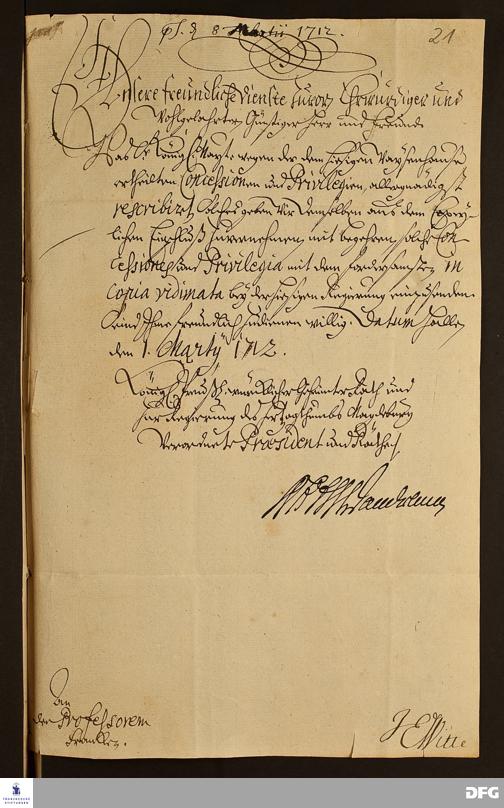 pſ. d. 8 Martii 1712.
21
Unsere freundliche dienste zuvor, Ehrwürdiger und
Wohlgelahrter, Günstiger Herr und Freund.
Was Se. Königl. Mayt. wegen der dem hiesigen Waysenhause
ertheilten Concessionen und Privilegien, allergnädigst
rescribiret, solches geben Wir demselben aus dem
lichen Einschluß zuvernehmen, mit begehren, solche Con
cessiones und Privilegia mit dem in
copia vidimata bey der hiesigen Regierung einzusenden.
Seind Ihme freundlich zu dienen willig. Datum Halle
den 1. Martij 1712.
Königl. Preuß. Geheimte Räth und
zur Regierung des Hertzogthumbs Magdeburg
Verordnete Præsident und Räthe
An
den Professorem
Francken.
J E Witte
FRANCKESCHE STIFTUNGEN
DFG